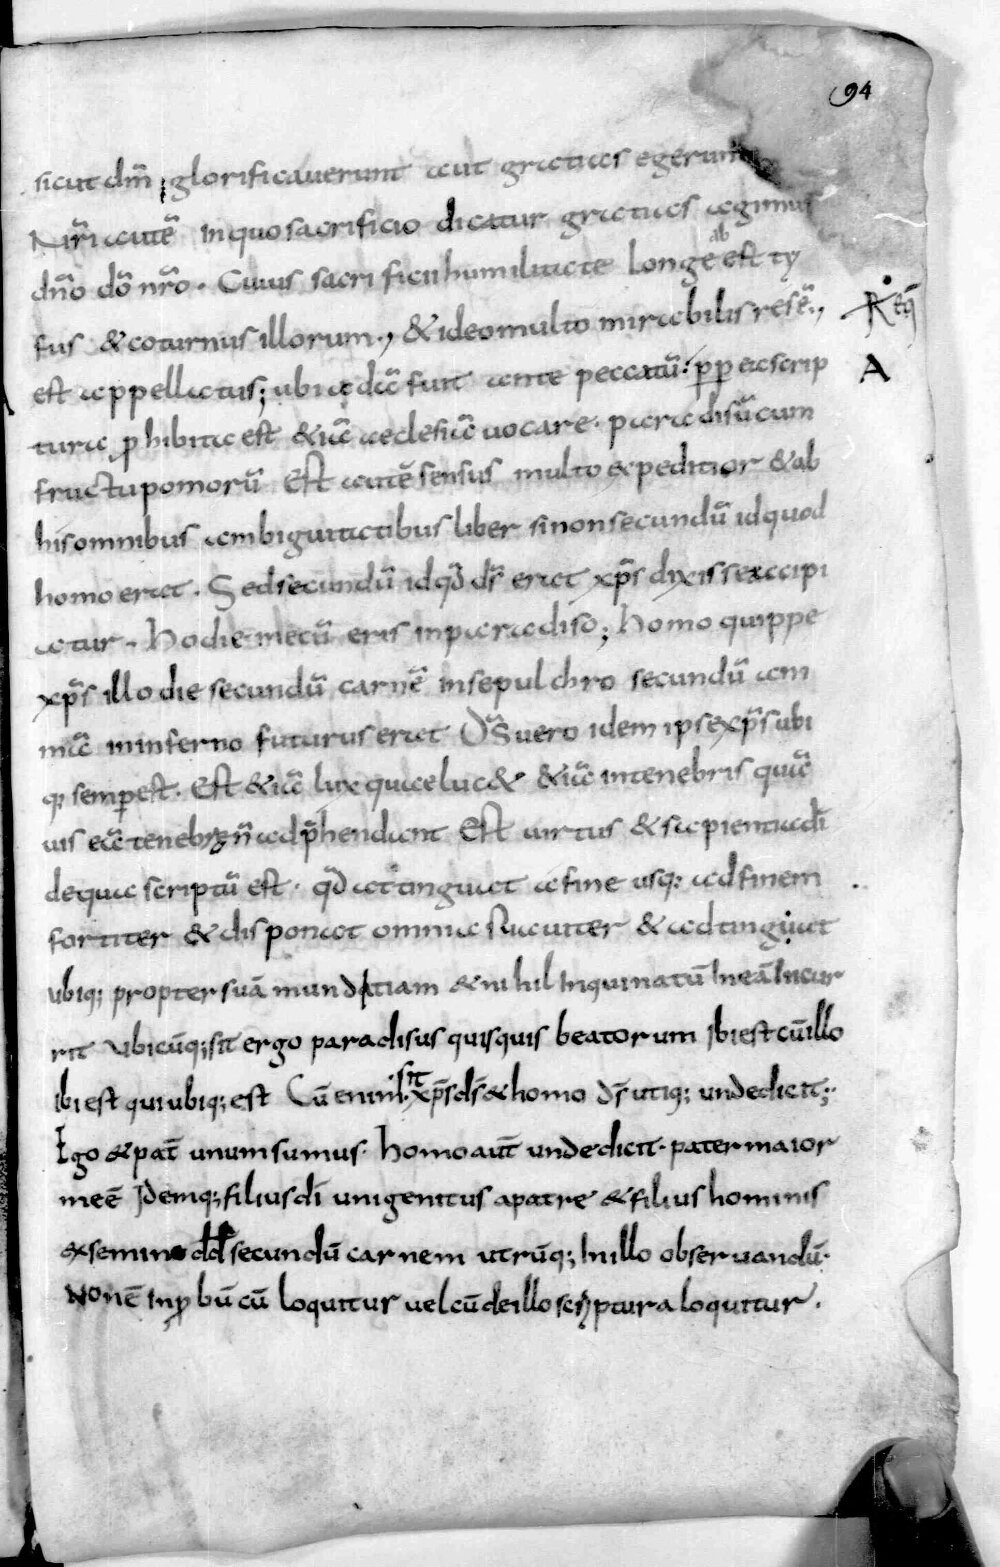 94
sicut dm̄ glorificauerunt aut gratias egerunt
Nr̄i autē in quo sacrificio dicatur gratias agimus
dn̄o dō nr̄o. Cuius sacrificii humilitate longe ab est ty
fus & coturnus illorum, & ideo multo mirabilis res ē.,
Req̄
est appellatus; ubi adā fuit ante peccatū. ꝓp ea scrip
A
tura ꝓhibita est & iā aeclesiā uocare. paradisū cum
fructu pomorū Est autē sensus multo expeditior & ab
his omnibus ambiguitatibus liber si non secundū id quod
homo erat. Sed secundū id qd̄ ds̄ erat xp̄s dixisse accipi
atur. Hodie mecū eris in paradisō; Homo quippe
xp̄s illo die secundū carnē in sepulchro secundū ani
mā in inferno futurus erat Ds̄ uero idem ipse xp̄s ubi
q; semp est. Est & iā lux quae luc& & iā in tenebris quā
uis eā tenebrȩ n̄ adp̄hendant Est uirtus & sapientia dī
de qua scriptū est. qd̄ attinguat a fine usq; ad finem
fortiter & disponat omnia suauiter & adtinguat
ubiq; propter suā munditiam & nihil inquinatū in eā incur
rit Vbicūq; sit ergo paradisus quisquis beatorum ibi est cū illo
ibi est qui ubiq; est Cū enim sit xp̄s ds̄ & homo ds̄ utiq; unde dicit;
Ego & pat̄ unum sumus. Homo aūt unde dicit. pater maior
me ē Idemq; filius dī unigenitus a patre & filius hominis
ex semine dd secundū carnem utrūq; In illo obseruandū.
Non ē inꝓ bū cū loquitur uel cū de illo scriptura loquitur.